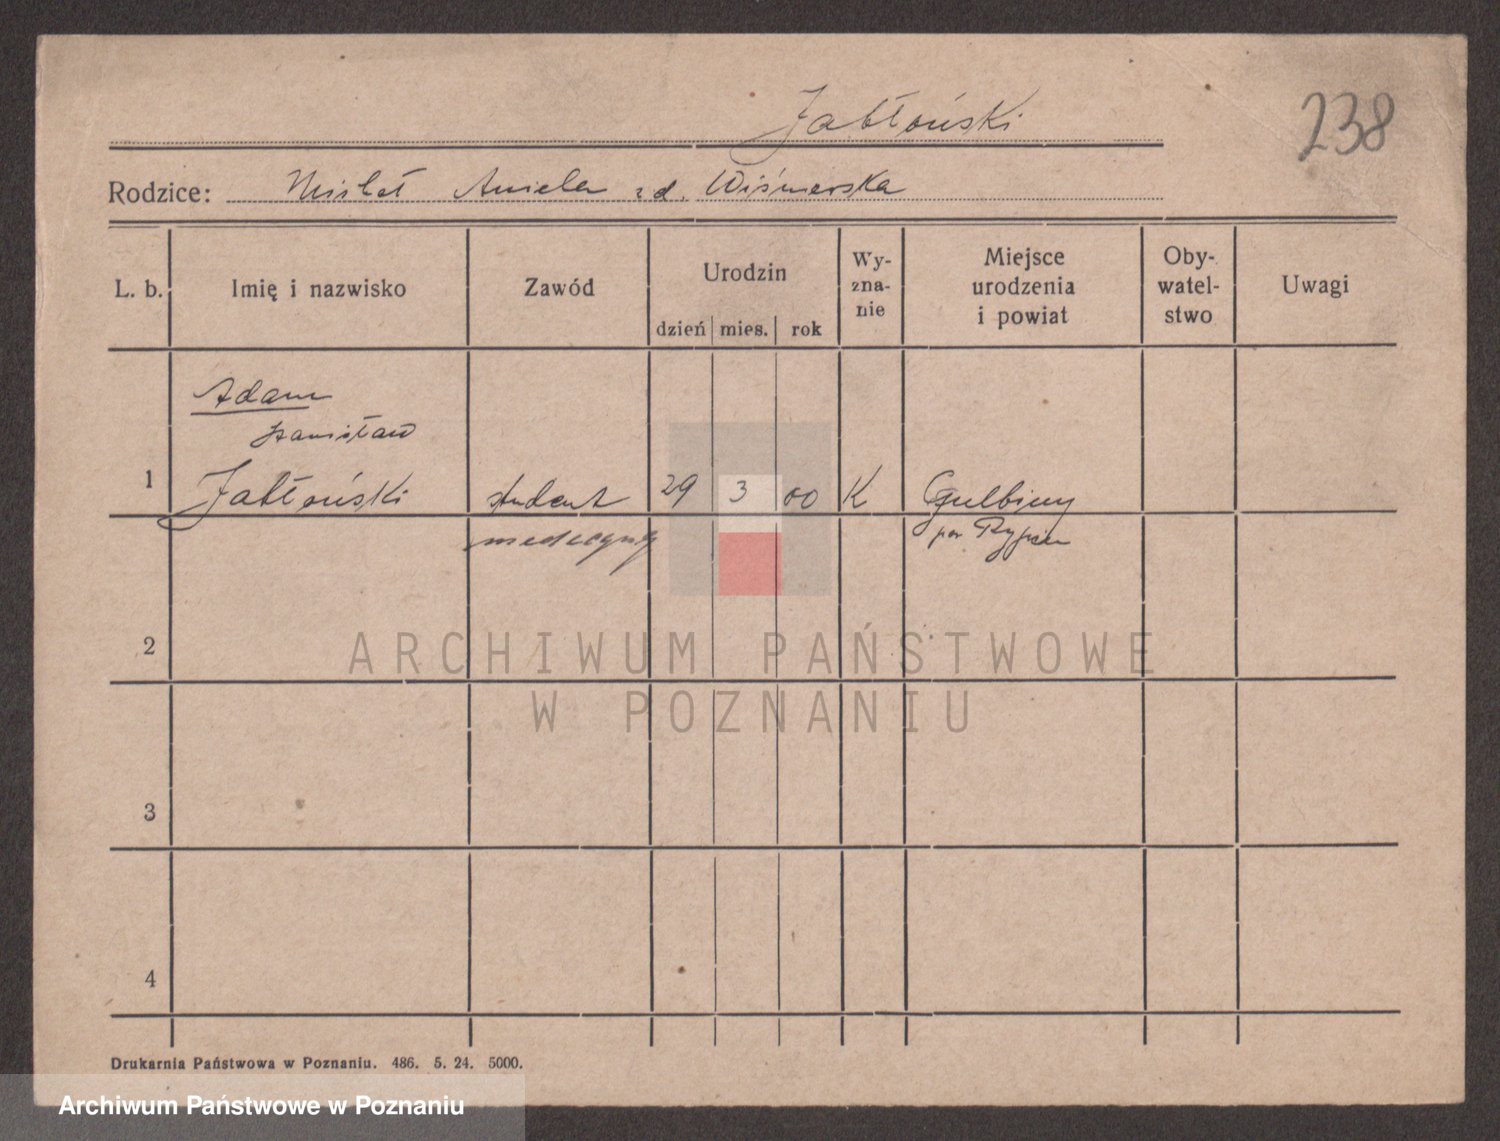 Jabłoński
238
Rodzice: Aniela zd. Wiśnierska
L. b.
Imię i nazwisko
Zawód
Urodzin
dzień mies. rok
Wy-
zna-
nie
Miejsce
urodzenia
i powiat
Oby-
watel-
stwo
Uwagi
Adam
Stanisław
1 Jabłoński student 29 3 00 K Gulbiny
medycyny
pow Rypin
2
ARCHIWUM PAŃSTWOWE
W POZNANIU
3
4
Drukarnia Państwowa w Poznaniu. 486. 5. 24. 5000.
Archiwum Państwowe w Poznaniu